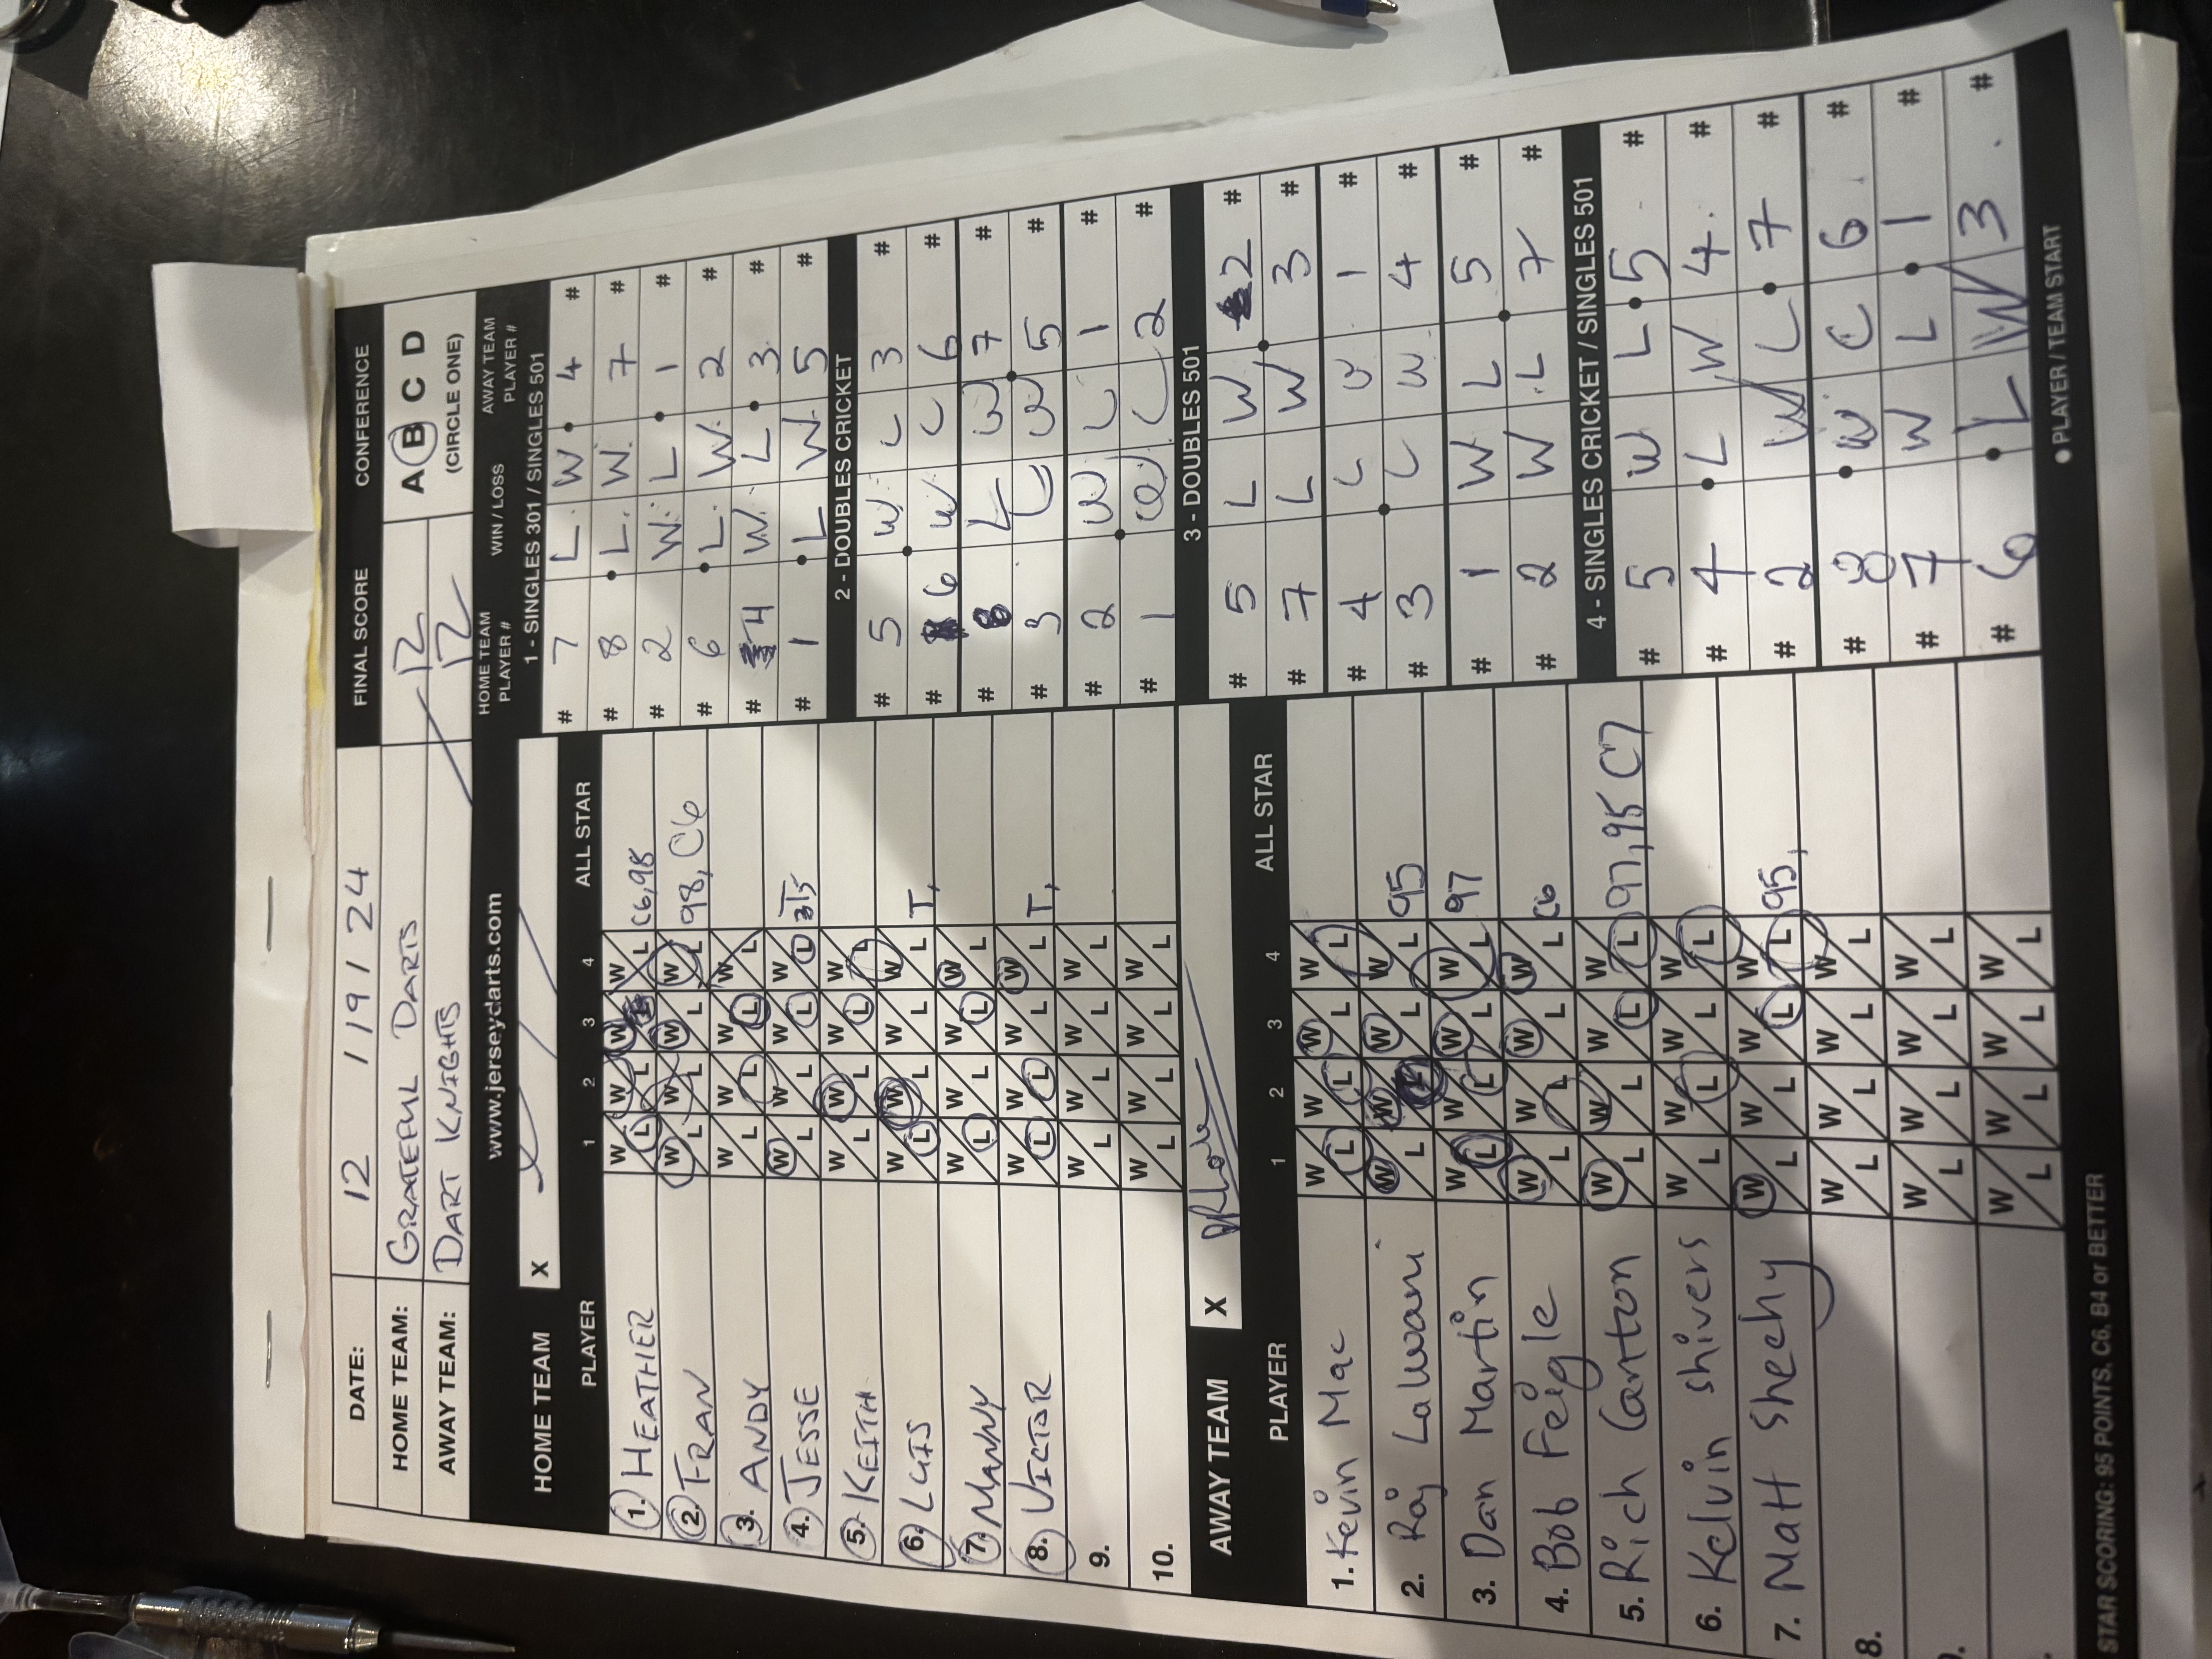 DATE: 12 / 19 / 24 FINAL SCORE CONFERENCE
HOME TEAM: GRATEFUL DARTS 12 A B C D
AWAY TEAM: DART KNIGHTS 12 (CIRCLE ONE)
www.jerseydarts.com
HOME TEAM X
PLAYER 1 2 3 4 ALL STAR
1. HEATHER W L W L W L W L C6, 98
2. FRAN W L W L W L W L 98, C6
3. ANDY W L W L W L W L
4. JESSE W L W L W L W L
5. KEITH W L W L W L W L
6. LUIS W L W L W L W L T,
7. MANNY W L W L W L W L
8. VICTOR W L W L W L W L T,
9. W L W L W L W L
10. W L W L W L W L
AWAY TEAM X
PLAYER 1 2 3 4 ALL STAR
1. Kevin Mac W L W L W L W L
2. Raj Lalwani W L W L W L W L 95
3. Dan Martin W L W L W L W L 97
4. Bob Feigle W L W L W L W L C6
5. Rich Canton W L W L W L W L 97, 95 C7
6. Kelvin Shivers W L W L W L W L
7. Matt Sheehy W L W L W L W L 95,
8. W L W L W L W L
W L W L W L W L
W L W L W L W L
STAR SCORING: 95 POINTS, C6, B4 or BETTER
HOME TEAM PLAYER # WIN / LOSS AWAY TEAM PLAYER #
1 - SINGLES 301 / SINGLES 501
# 7 L W 4 #
# 8 L W 7 #
# 2 W L 1 #
# 6 L W 2 #
# 4 W L 3 #
# 1 L W 5 #
2 - DOUBLES CRICKET
# 5 W L 3 #
# 6 W L 6 #
# 8 L W 7 #
# 3 L W 5 #
# 2 W L 1 #
# 1 W L 2 #
3 - DOUBLES 501
# 5 L W 2 #
# 7 L W 3 #
# 4 L W 1 #
# 3 L W 4 #
# 1 W L 5 #
# 2 W L 7 #
4 - SINGLES CRICKET / SINGLES 501
# 5 W L 5 #
# 4 L W 4 #
# 2 W L 7 #
# W L 6 #
# 7 W L 1 #
# 6 L W 3 #
● PLAYER / TEAM START